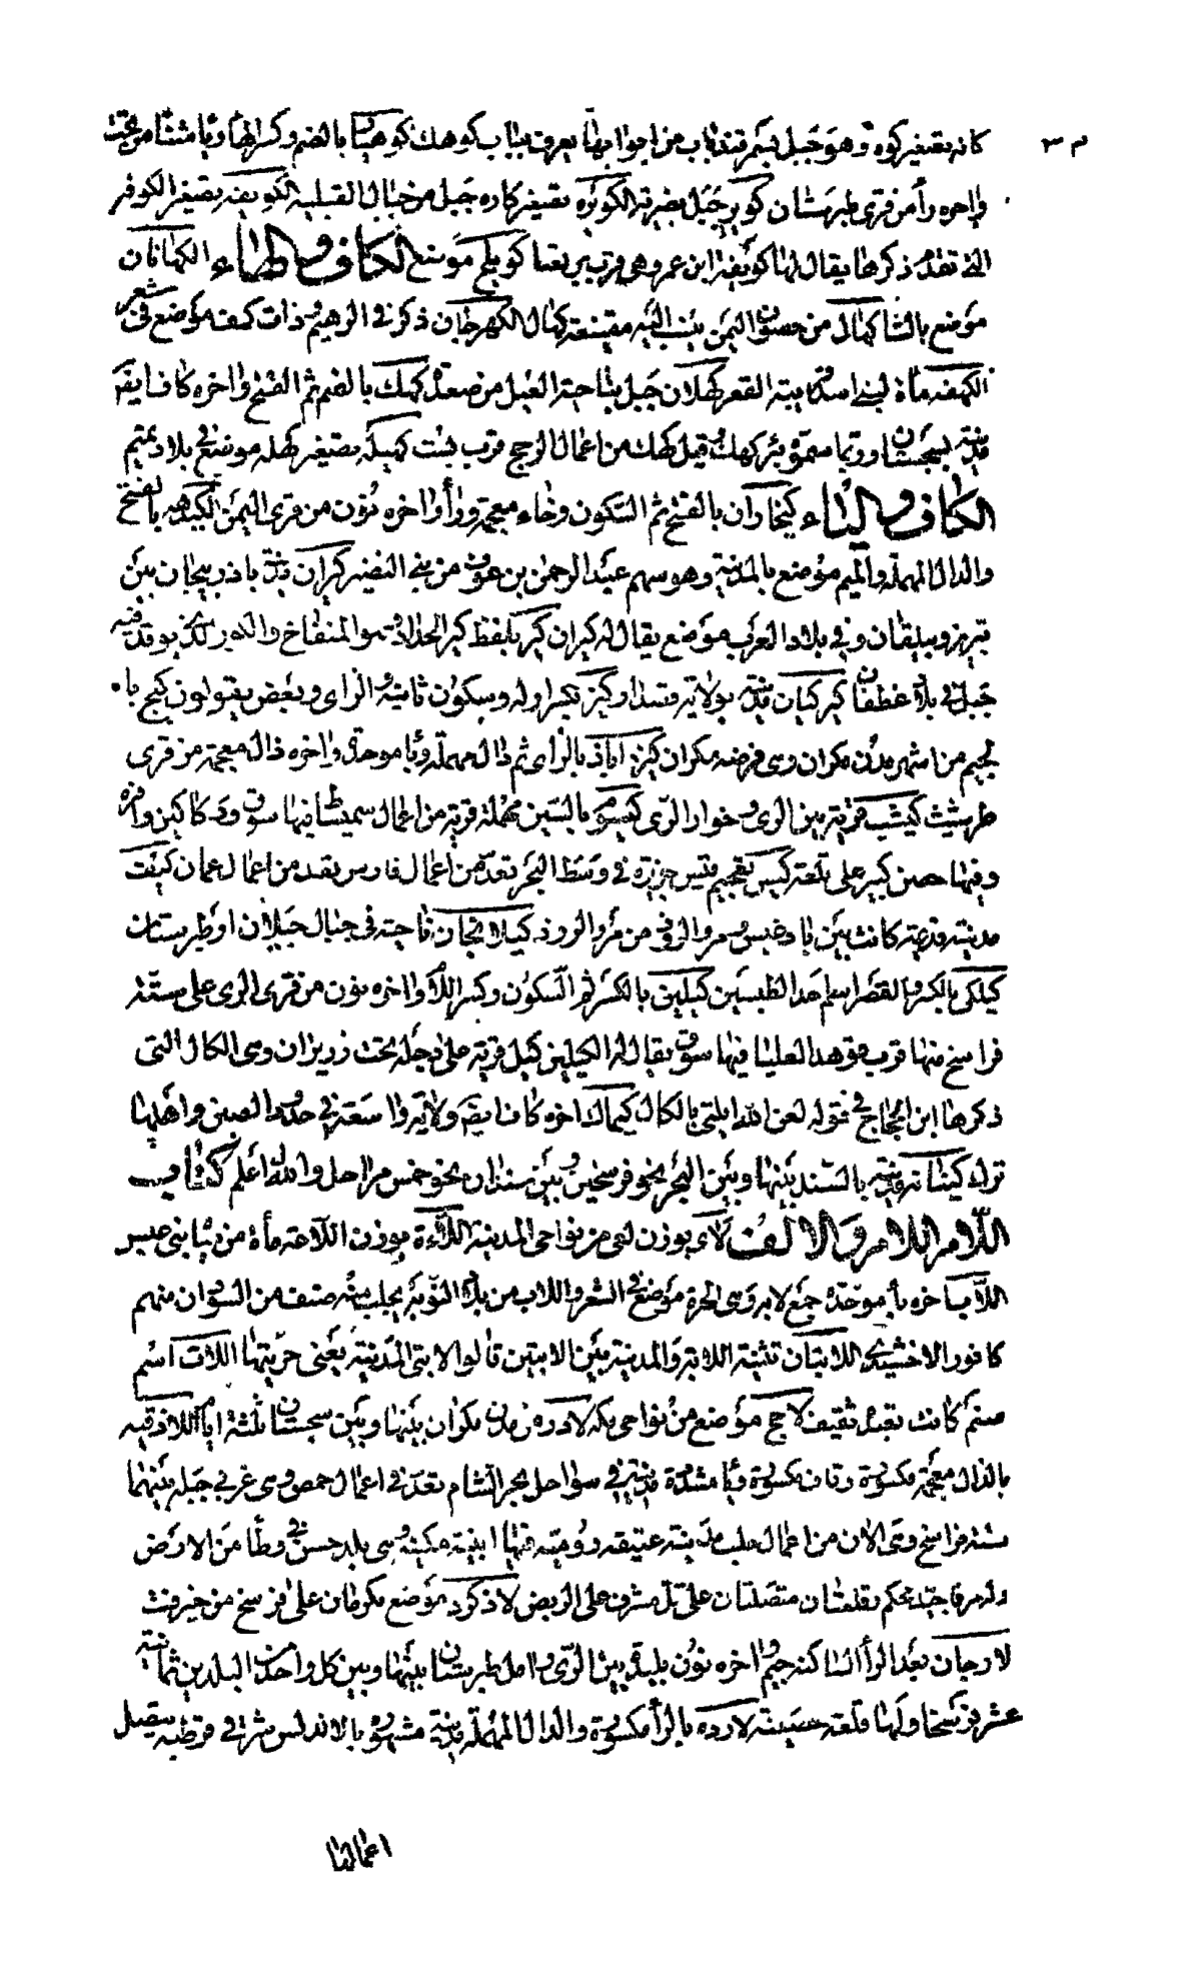 كانه تصغير كوه وهو جبل بسمرقند باب من ابوابها يعرف بباب كوهك كوهيار بالضم وكسر الهاء ويا مثناة من تحت
واخره را من قرى طبرستان كوير جبل بضرية الكويره تصغير كاره جبل من جبال القبلية الكويفه تصغير الكوفه
التي تقدم ذكرها يقال لها كويفة ابن عمر وهي قرب بزيقيا كويلح موضع الكاف والهاء الكهاتان
موضع بالشام كهال من حصون اليمن ينسب اليه مقيمنعة كهال الكهرجان ذكر في الرهيم ذات كهف موضع في شعر
الكهفه ماءة لبني اسد قريبة القعر كهلان جبل بناحية الغيل من صعده كهك بالضم ثم الفتح واخره كاف ايضا
مدينة بسجستان وربما سموه بئر كهك وقيل كهك من اعمال الرخج قرب بست كهيله تصغير كهله موضع في بلاد تميم
الكاف والياء كيخاران بالفتح ثم السكون وخاء معجمة وراء واخره نون من قرى اليمن الكيدمه بالفتح
والدال المهملة والميم موضع بالمدينة وهو سهم عبد الرحمن بن عوف من بني النضير كيران مدينة باذربيجان بين
تبريز وبيلقان وفي بلاد العرب موضع يقال له كيران كير بلفظ كير الحداد وهو المنفاخ والكور الذي يوقد فيه
جبل في بلاد غطفان كيركيان مدينة بولاية قصدار كيز بكسر اوله وسكون ثانيه والزاي وبعض يقولون كيج با
لجيم من اشهر مدن مكران وهي فرضة مكران كيز اباذ بالزاي ثم ذال مهملة وبا موحدة واخره ذال معجمة من قرى
طريثيث كيشب قرية بين الري وخوار الري كيسوم بالسين مهملة قرية من اعمال سميساط فيها سوق ودكاكين وافره
وفيها حصن كبير على تلعة كيش تعجيم قيس جزيرة في وسط البحر تعد من اعمال فارس تعد من اعمال عمان كيف
مدينة قديمة كانت بين باذغيس ومرو الروذ من مرو الروذ كيلانجان ناحية في جبال جيلان او طبرستان
كيلكى بالكسر والقصر اسم احد الطبسين كيلين بالكسر ثم السكون وكسر اللام واخره نون من قرى الري على ستة
فراسخ منها قرب قوهذ العليا فيها سوق يقال له الكيلين كيل قرية على دجلة تحت زريران وهي الكال التي
ذكرها ابن الحجاج في قوله لعن الله ليلتي بالكال كيماك اخره كاف ايضا ولاية واسعة في حدود الصين واهلها
ترك كينانه مدينة بالسند بينها وبين البحر نحو فرسخين وبين سندان نحو خمس مراحل والله اعلم كتاب
اللام اللام والالف لاى بوزن لعى من نواحي المدينة اللاءة بوزن اللاعة ماءة من مياه بني عبس
اللاب اخره باء موحدة جمع لابه وهي الحرة موضع في الشعر واللاب من بلاد النوبة يجلب منه صنف من السودان منهم
كافور الاخشيدي اللابتان تثنية اللابة والمدينة بين الابتين قالوا لابتي المدينة يعني حرتيها اللات اسم
صنم كانت تعبده ثقيف لاحج موضع من نواحي مكه لادره من مدن مكران بينها وبين سجستان ثلثة ايام اللاذقيه
بالذال معجمة مكسورة وقاف مكسورة ويا مشددة مدينة في سواحل بحر الشام تعد في اعمال حمص وهي غربي جبله بينهما
ستة فراسخ وهي الان من اعمال حلب مدينة عتيقه رومية فيها ابنية مكينة وهي بلد حسن في وطا من الارض
وله مرفا جيد محكم وقلعتان متصلتان على تل مشرف على الربض لاذكرد موضع بكرمان على فرسخ من جيرفت
لارجان بعد الرا الساكنة جيم واخره نون بليدة بين الري وامل طبرستان بينها وبين كل واحدة من البلدين ثمانية
عشر فرسخا ولها قلعة حصينة لارده بالرا مكسورة والدال المهملة مدينة مشهورة بالاندلس شرقي قرطبه يتصل
اعمالها